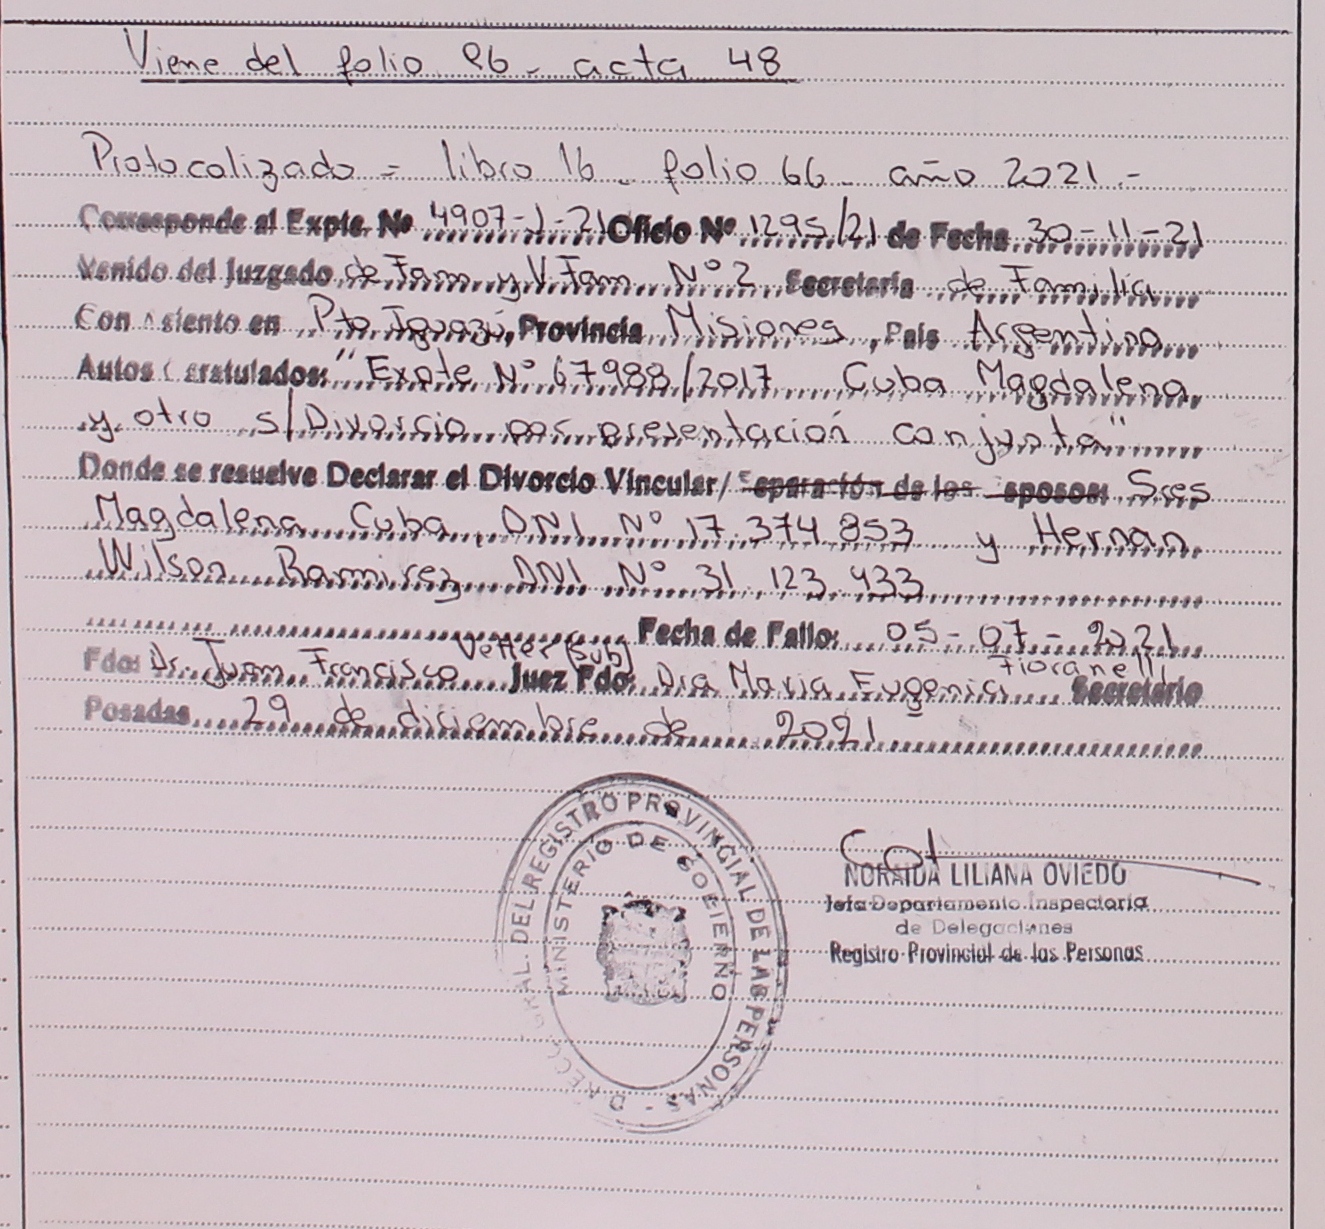 Viene del folio 26 - acta 48
Protocolizado = libro 16 - folio 66 - año 2021.-
Corresponde al Expte. Nº 4907-J-21 Oficio Nº 1295/21 de Fecha 30-11-21
Venido del Juzgado de Fam y V. Fam Nº 2 Secretaría de Familia
Con Asiento en Pto Iguazú, Provincia Misiones, País Argentina
Autos Caratulados: "Expte Nº 67988/2017 Cuba Magdalena
y otro s/Divorcio por presentación conjunta"
Donde se resuelve Declarar el Divorcio Vincular/ Separación de los esposos: Sres
Magdalena Cuba, DNI Nº 17.374.853 y Hernan
Wilson Ramirez DNI Nº 31.123.433
Fecha de Fallo: 05-07-2021
Fdo: Dr. Juan Francisco Vetter (Sub) Juez Fdo: Dra Maria Eugenia Fioranelli Secretario
Posadas 29 de diciembre de 2021
DIRECC. GRAL. DEL REGISTRO PROVINCIAL DE LAS PERSONAS -
MINISTERIO DE GOBIERNO
NORAIDA LILIANA OVIEDO
Jefa Departamento Inspectoria
de Delegaciones
Registro Provincial de las Personas